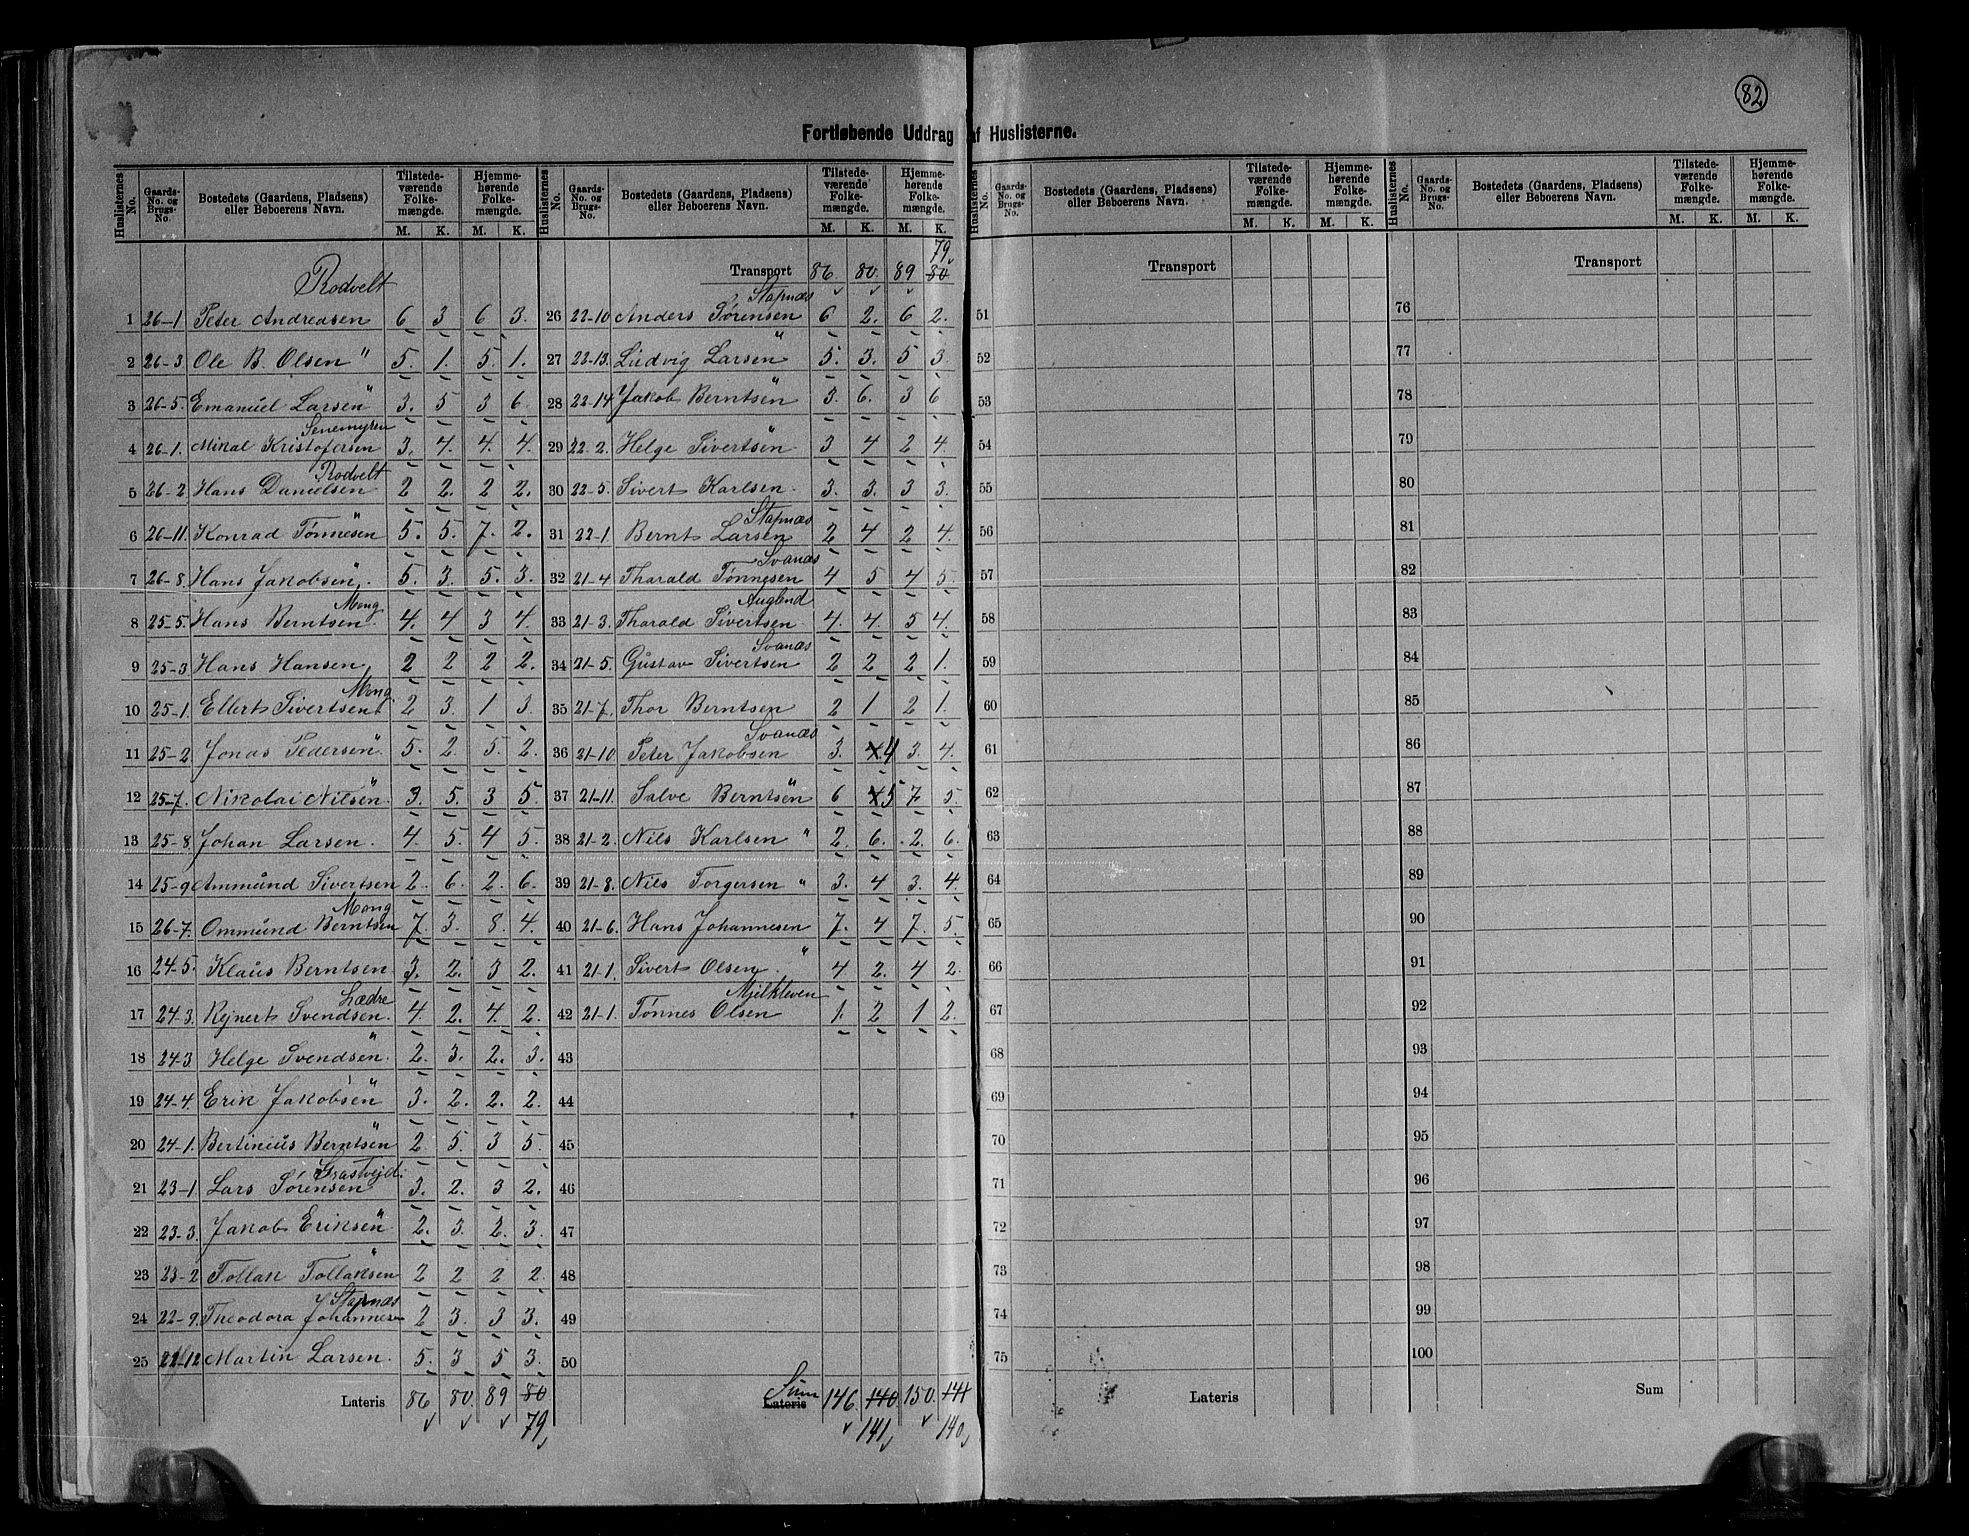 82
Fortløbende Uddrag af Huslisterne.
Huslisternes No. | Gaards-No. og Brugs-No. | Bostedets (Gaardens, Pladsen) eller Beboerens Navn. | Tilstedeværende Folkemængde. M. K. | Hjemmehørende Folkemængde. M. K.
Rodvelt
1 26-1 Peter Andreasen 6 3 6 3.
2 26-3 Ole B. Olsen " 5. 1. 5. 1.
3 26-5. Emanuel Larsen " 3. 5 3 6.
Senemyren
4 26-1. Mikal Kristofersen 3. 4. 4. 4.
Rodvelt
5 26-2 Hans Danielsen 2 2. 2 2.
6 26-11. Konrad Tønnesen 5. 5. 7. 2.
7 26-8. Hans Jakobsen " 5. 3. 5. 3.
Mong
8 25-5. Hans Berntsen 4. 4 3 4.
9 25-3 Hans Hansen 2 2 2 2.
Mong
10 25-1. Ellert Sivertsen 2 3. 1 3.
11 25-2. Jonas Pedersen " 5. 2. 5. 2.
12 25-7. Nikolai Nilsen " 3. 5. 3 5.
13 25-8. Johan Larsen. 4. 5. 4 5.
14 25-9. Ammund Sivertsen 2. 6. 2. 6.
Mong
15 26-7. Ommund Berntsen 7. 3. 8. 4.
16 24-5. Klaus Berntsen 3. 2. 3 2.
Lædre
17 24-3. Rejnert Svendsen. 4. 2. 4. 2.
18 24-3 Helge Svendsen " 2. 3. 2. 3.
19 24-4. Erik Jakobsen " 3. 2. 2. 2.
20 24-1. Bertineus Berntsen " 2. 5. 3 5.
Grastvejd.
21 23-1. Lars Sørensen 3. 2. 3 2.
22 23-3. Jakob Eriksen " 2. 3 2. 3.
23 23-2 Tollak Tollaksen " 2 2 2 2.
Stapnæs
24 22-9. Theodora Johannesen 2 3. 3 3.
25 22-12 Martin Larsen. 5. 3 5 3.
Lateris 86 80. 89 80
79
79
Transport 86. 80. 89 80
Stapnæs
26 22-10 Anders Sørensen 6 2. 6 2.
27 22-13. Ludvig Larsen " 5. 3. 5 3.
28 22-14 Jakob Berntsen " 3. 6. 3 6
29 22-2. Helge Sivertsen " 3 4 2 4.
30 22-5. Sivert Karlsen. 3. 3. 3 3.
Stapnæs
31 22-1. Bernt Larsen 2 4 2 4.
Svanæs
32 21-4 Tharald Tønnesen 4 5 4 5.
Auglend
33 21-3. Tharald Sivertsen 4. 4. 5 4.
Svanæs
34 21-5. Gustav Sivertsen 2 2 2 1.
35 21-7. Thor Berntsen 2 1 2 1.
Svanæs
36 21-10. Peter Jakobsen 3. 4 3. 4.
37 21-11. Salve Berntsen " 6 5 7 5.
38 21-2. Nils Karlsen " 2. 6. 2. 6.
39 21-8. Nils Torgersen " 3. 4 3. 4.
40 21-6. Hans Johannesen 7. 4 7. 5.
41 21-1. Sivert Olsen. " 4 2. 4 2.
Mjelkleven
42 21-1. Tønnes Olsen 1. 2 1 2.
43
44
45
46
47
48
49
50
Sum
Lateris 146. 140 150. 141
141 140
Huslisternes No. | Gaards-No. og Brugs-No. | Bostedets (Gaardens, Pladsen) eller Beboerens Navn. | Tilstedeværende Folkemængde. M. K. | Hjemmehørende Folkemængde. M. K.
Transport
51
52
53
54
55
56
57
58
59
60
61
62
63
64
65
66
67
68
69
70
71
72
73
74
75
Lateris
Transport
76
77
78
79
80
81
82
83
84
85
86
87
88
89
90
91
92
93
94
95
96
97
98
99
100
Sum